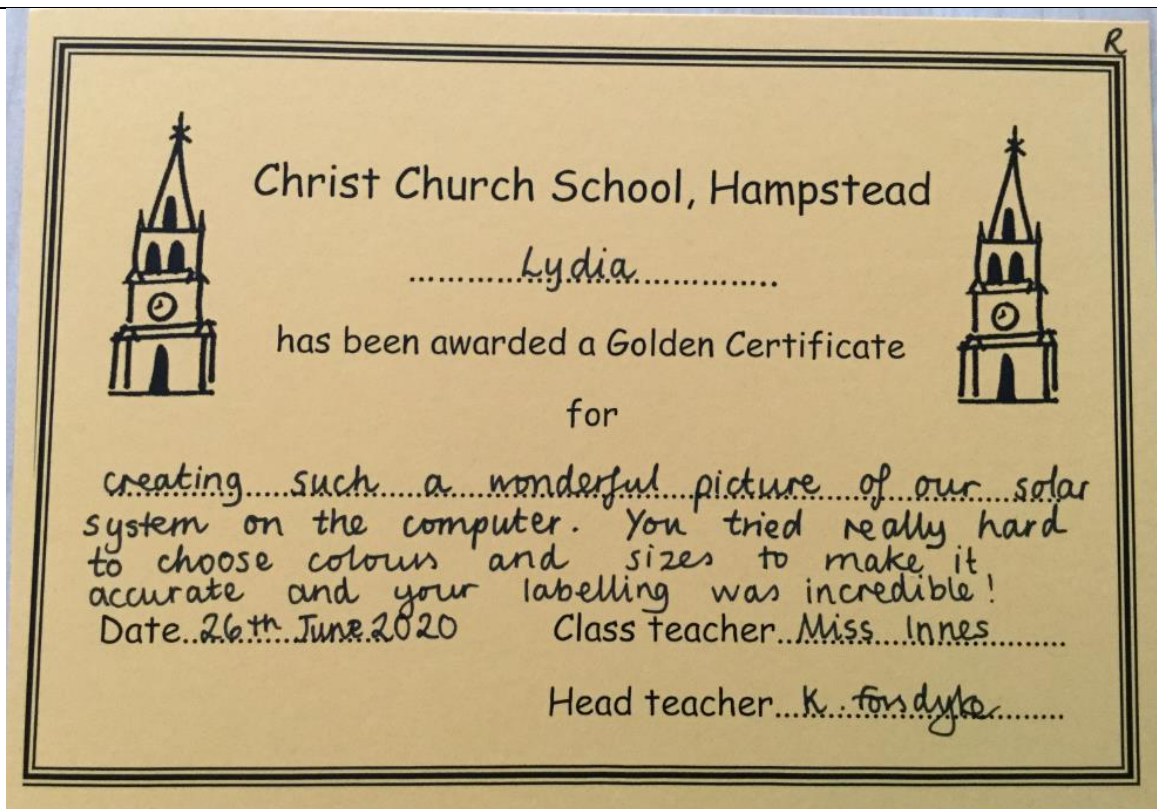 R
Christ Church School, Hampstead
..........Lydia..............
has been awarded a Golden Certificate
for
creating such a wonderful picture of our solar
system on the computer. You tried really hard
to choose colours and sizes to make it
accurate and your labelling was incredible!
Date..26th June 2020 Class teacher..Miss Innes..........
Head teacher...K. Forsdyke.........